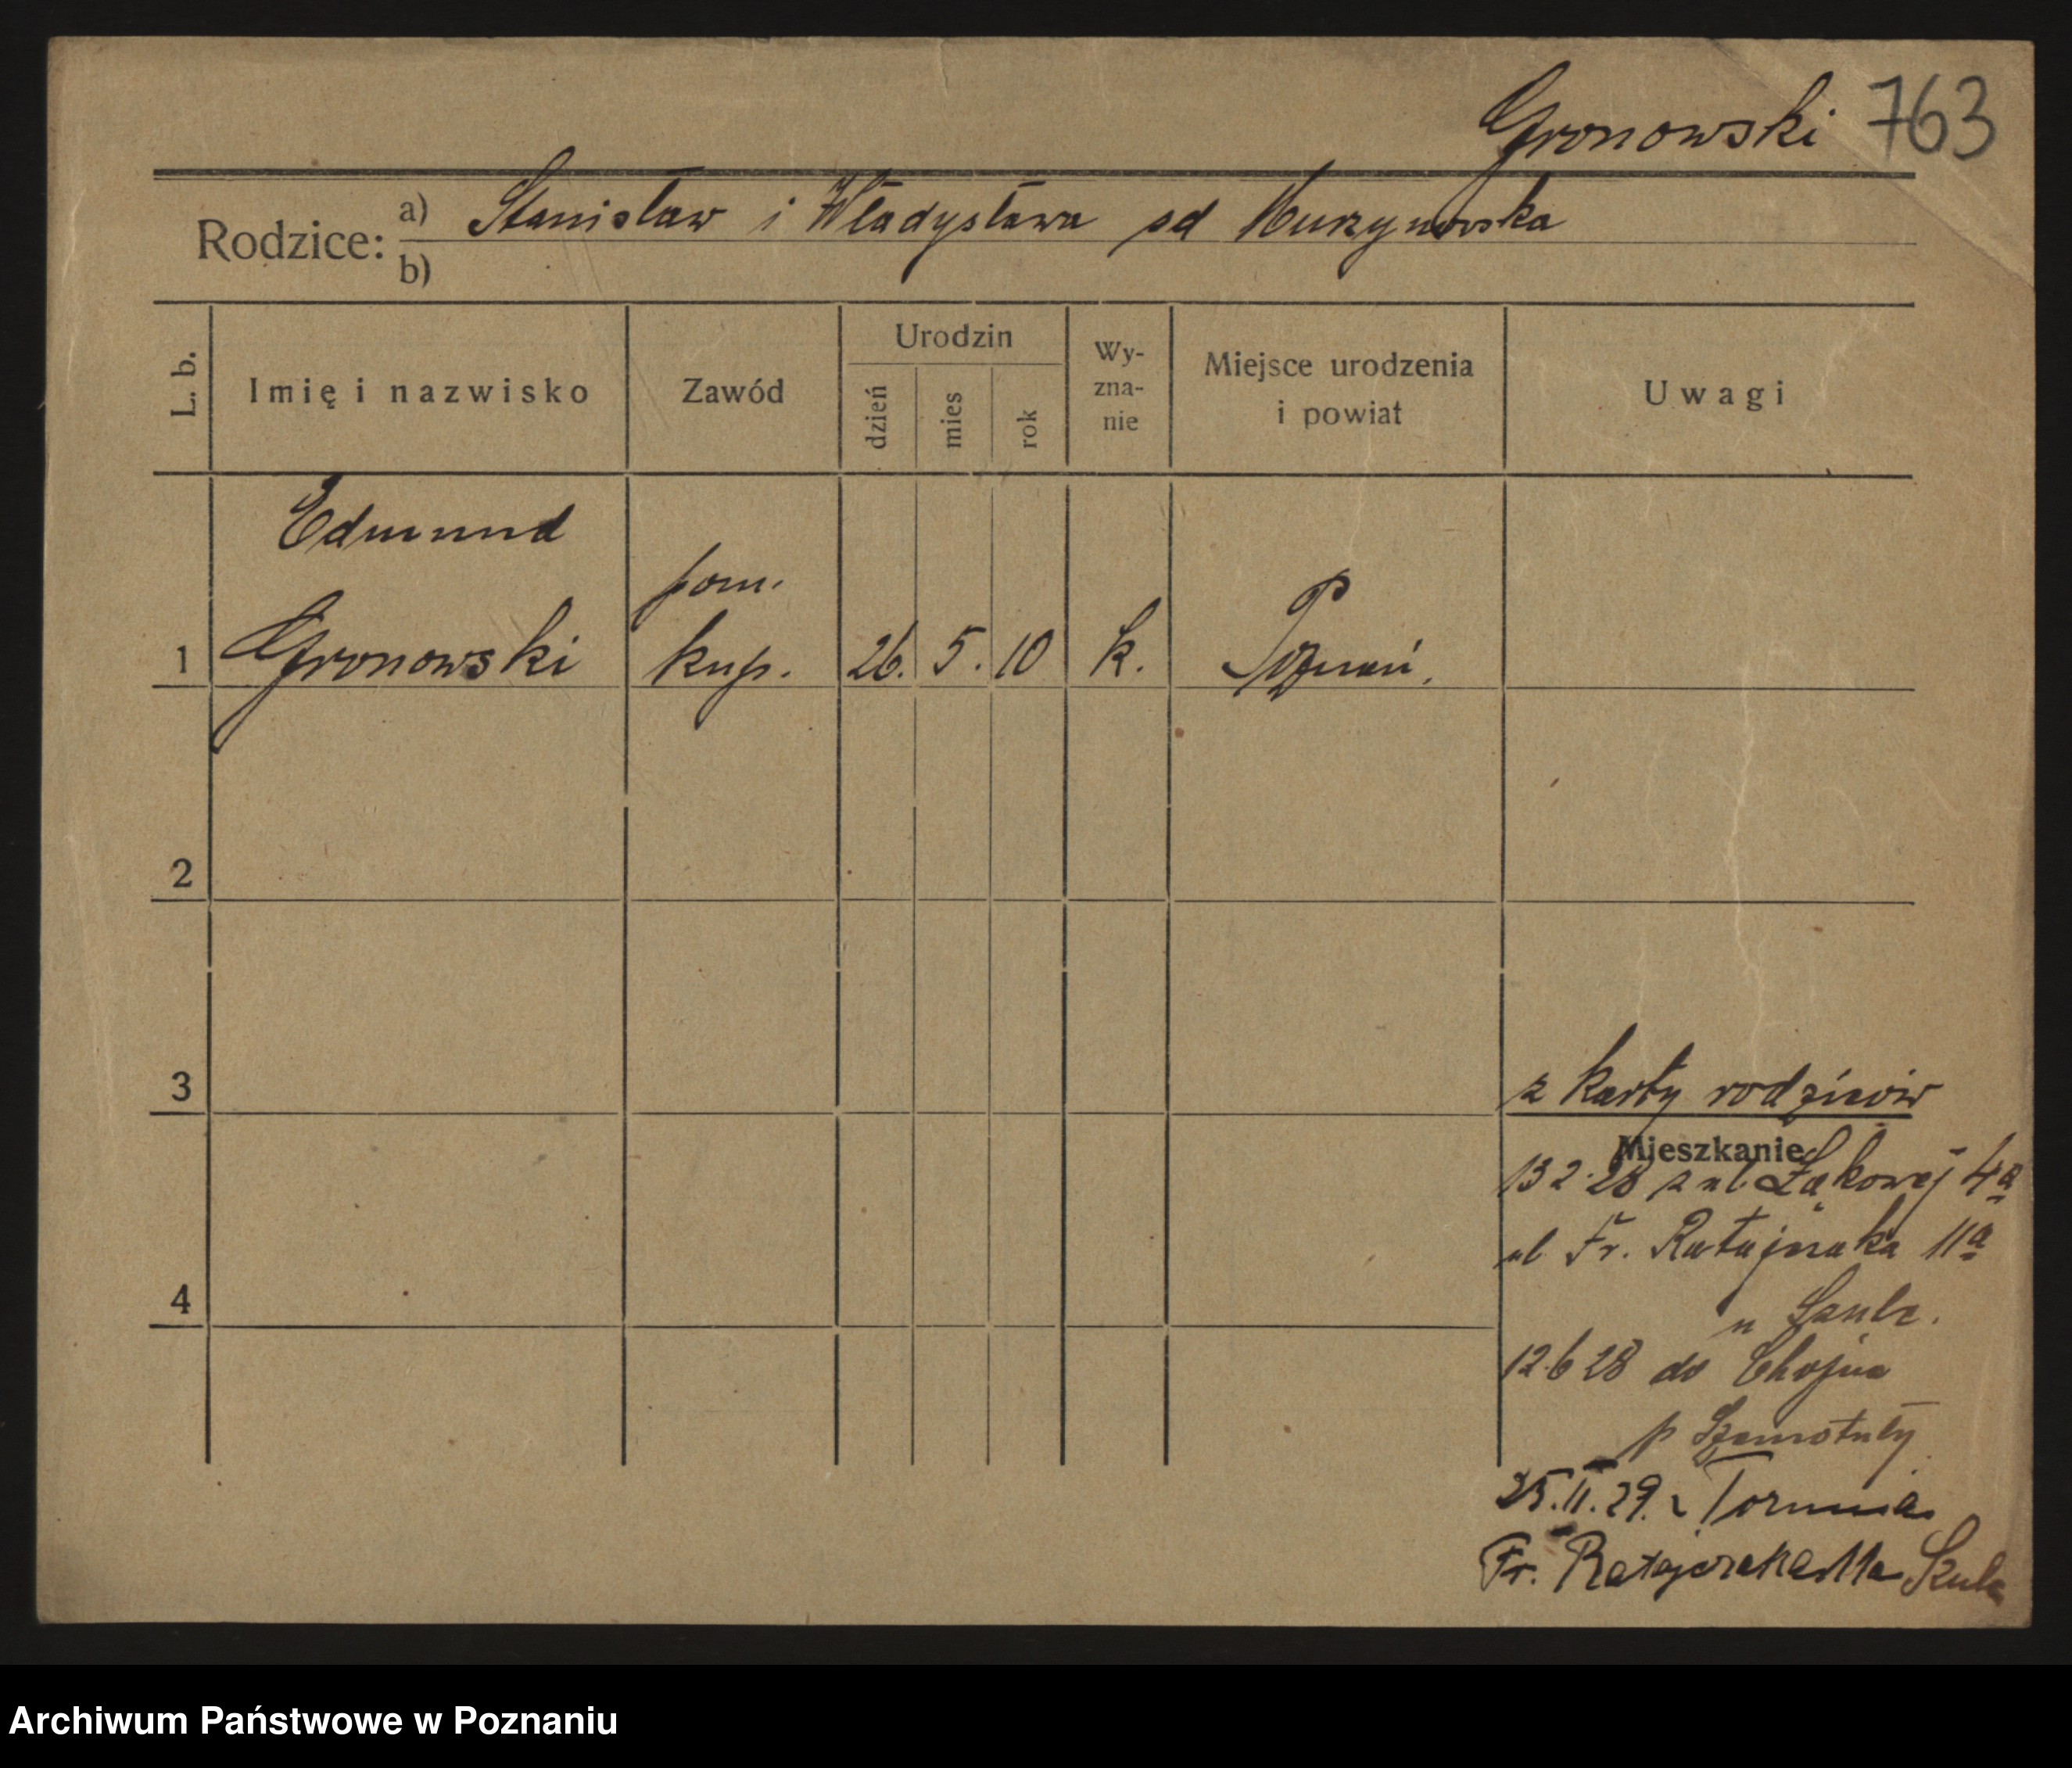 Gronowski 763
Rodzice: a) Stanisław i Władysława zd Murzynowska
b)
L. b.
Imię i nazwisko
Zawód
Urodzin
dzień
mies
rok
Wy-
zna-
nie
Miejsce urodzenia
i powiat
Uwagi
Edmund
Gronowski
pom.
kup.
1
26. 5. 10
k.
P
Poznań.
2
3
4
z karty rodziców
Mieszkanie
13 2 28 z ul. Łąkowej 4a
ul Fr. Ratajczaka 11a
u Szulc.
12.6 28 do Chojna
p Szamotuły
25.II.29. z Torunia
Fr. Ratajczaka 11a Szulc
Archiwum Państwowe w Poznaniu